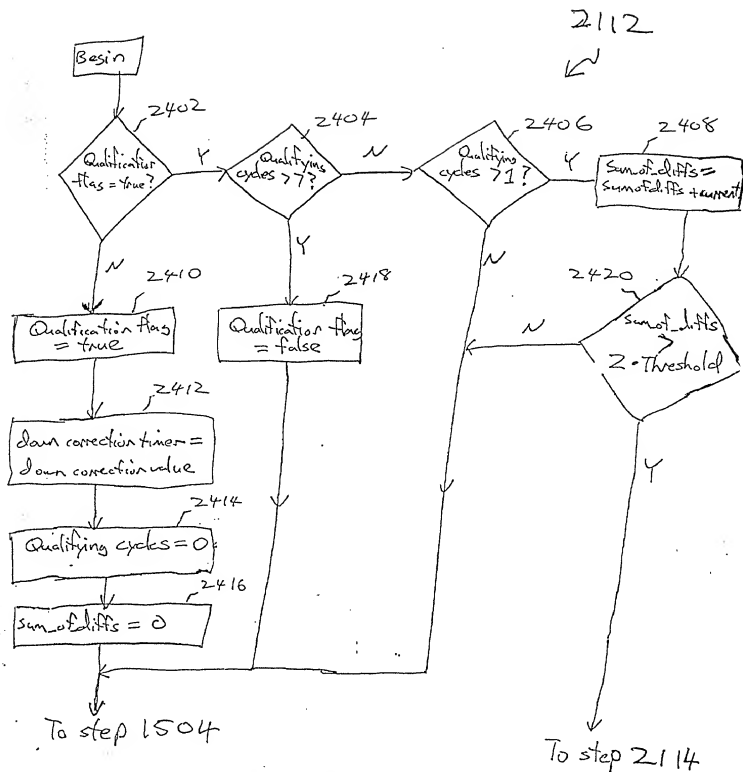 2112
Begin
2402
Qualification
flag = true?
Y
N
2404
Qualifying
cycles > 7?
N
Y
2406
Qualifying
cycles > 1?
Y
N
2408
Sum_of_diffs =
sumofdiffs + current
2410
Qualification flag
= true
2418
Qualification flag
= false
2420
sum of_diffs
>
2 · Threshold
N
Y
2412
down correction timer =
down correction value
2414
Qualifying cycles = 0
2416
sum_of diffs = 0
To step 1504
To step 2114